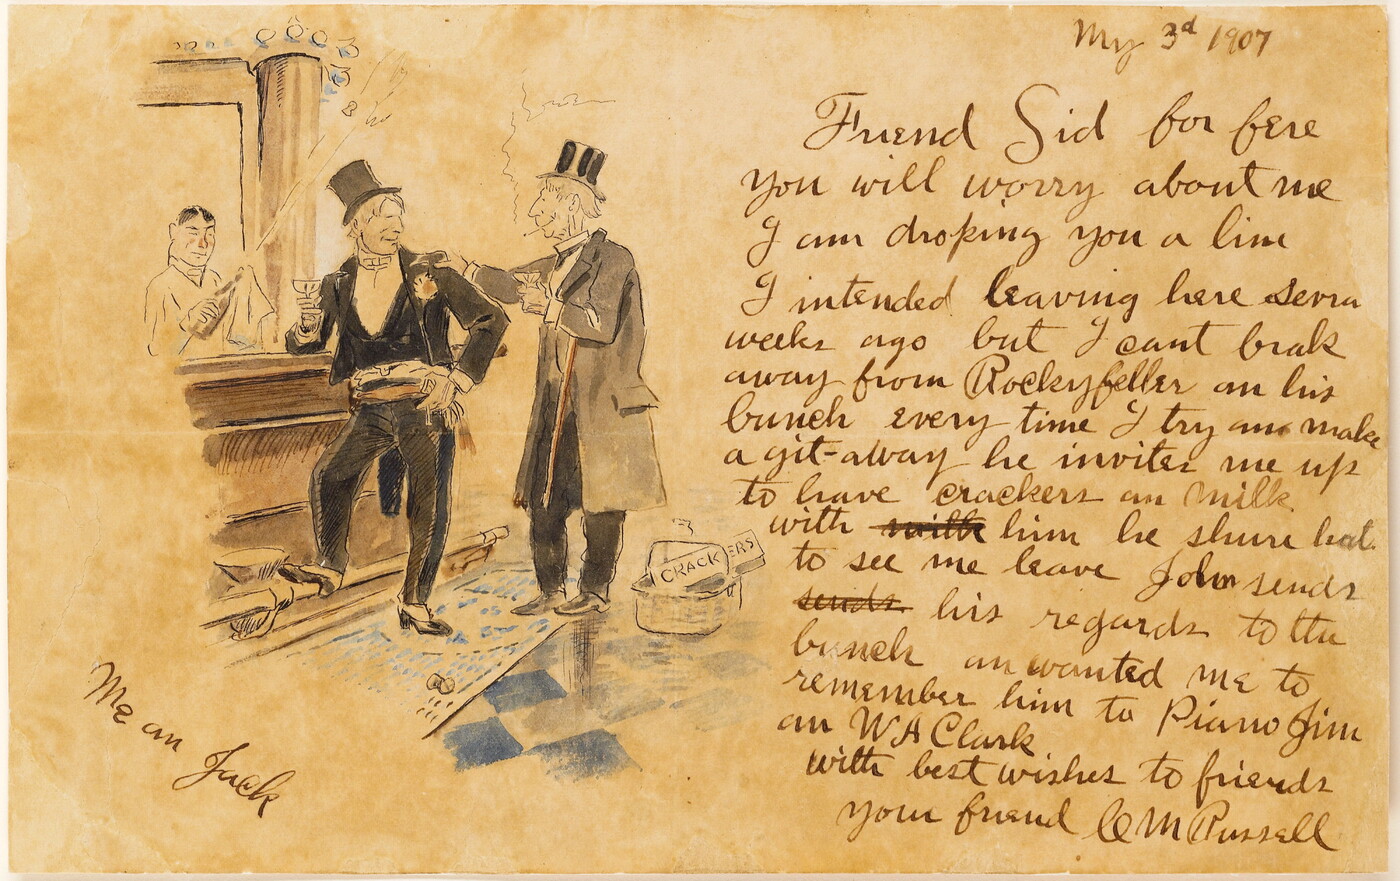 My 3d 1907
Friend Sid for fere
you will worry about me
I am droping you a line
I intended leaving here sevra
weeks ago but I cant brak
away from Rockyfeller an his
bunch every time I try an make
a git-away he invites me up
to have crackers an milk
with him he shure hat
to see me leave John sends
his regards to the
bunch an wanted me to
remember him to Piano Jim
an W A Clark
with best wishes to friends
your friend C M Russell
CRACKERS
Me an Jack